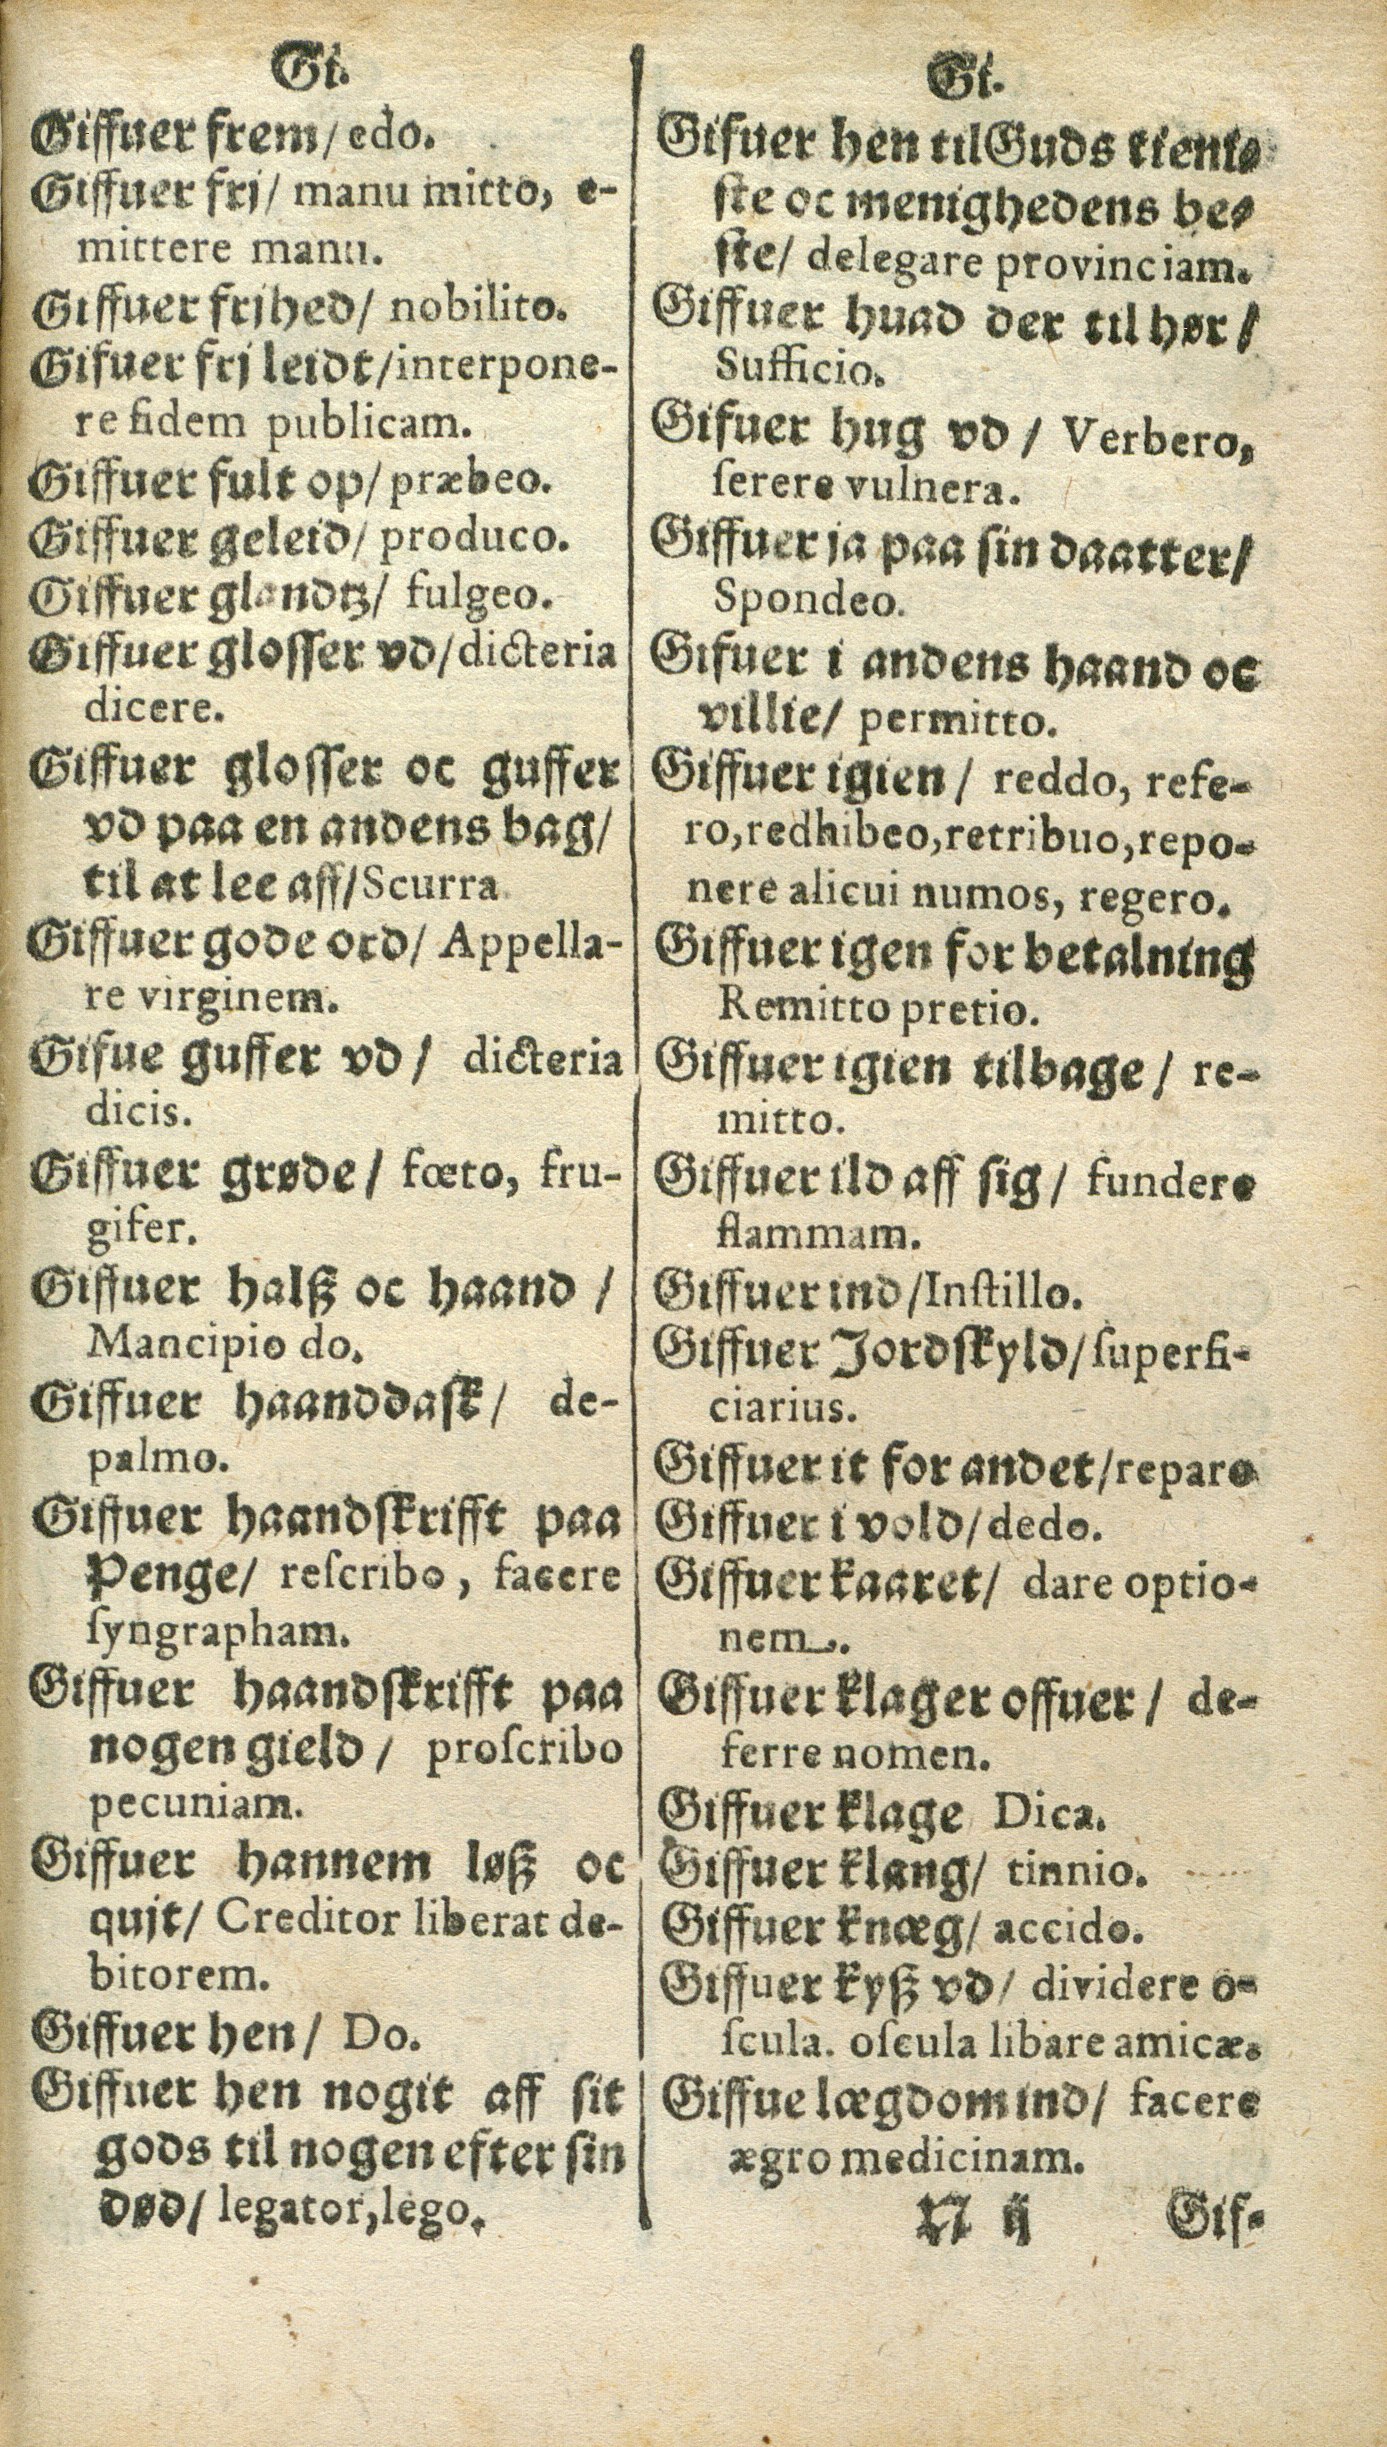 Gi.
Giffuer frem/ edo.
Giffuer frj/ manu mitto, e-
mittere manu.
Giffuer frjhed/ nobilito.
Gifuer frj leidt/interpone-
re fidem publicam.
Giffuer fult op/ præbeo.
Giffuer geleid/ produco.
Giffuer glandtz/ fulgeo.
Giffuer glosser vd/dicteria
dicere.
Giffuer glosser oc guffer
vd paa en andens bag/
til at lee aff/Scurra
Giffuer gode ord/ Appella-
re virginem.
Gifue guffer vd/ dicteria
dicis.
Giffuer grøde/ fœto, fru-
gifer.
Giffuer halß oc haand /
Mancipio do.
Giffuer haanddaſk/ de-
palmo.
Giffuer haandſkrifft paa
Penge/ reſcribo, facere
ſyngrapham.
Giffuer haandſkrifft paa
nogen gield/ proſcribo
pecuniam.
Giffuer hannem løß oc
qujt/ Creditor liberat de-
bitorem.
Giffuer hen/ Do.
Giffuer hen nogit aff ſit
gods til nogen efter ſin
død/ legator,lego.
Gi.
Gifuer hen til Guds tieni-
ſte oc menighedens be-
ſte/ delegare provinciam.
Giffuer huad der til hør/
Sufficio.
Gifuer hug vd / Verbero,
ſerere vulnera.
Giffuer ja paa ſin daatter/
Spondeo.
Gifuer i andens haand oc
villie/ permitto.
Giffuer igien/ reddo, refe-
ro,redhibeo,retribuo,repo-
nere alicui numos, regero.
Giffuer igen for betalning
Remitto pretio.
Giffuer igien tilbage/ re-
mitto.
Giffuer ild aff ſig/ fundere
flammam.
Giffuer ind/Inſtillo.
Giffuer Jordſkyld/ſuperfi-
ciarius.
Giffuer it for andet/reparo
Giffuer i vold/dedo.
Giffuer kaaret/ dare optio-
nem.
Giffuer klager offuer/ de-
ferre nomen.
Giffuer klage Dica.
Giffuer klang/ tinnio.
Giffuer knæg/ accido.
Giffuer kyß vd/ dividere o-
ſcula. oſcula libare amicæ.
Giffue lægdom ind/ facere
ægro medicinam.
N ij Gif-